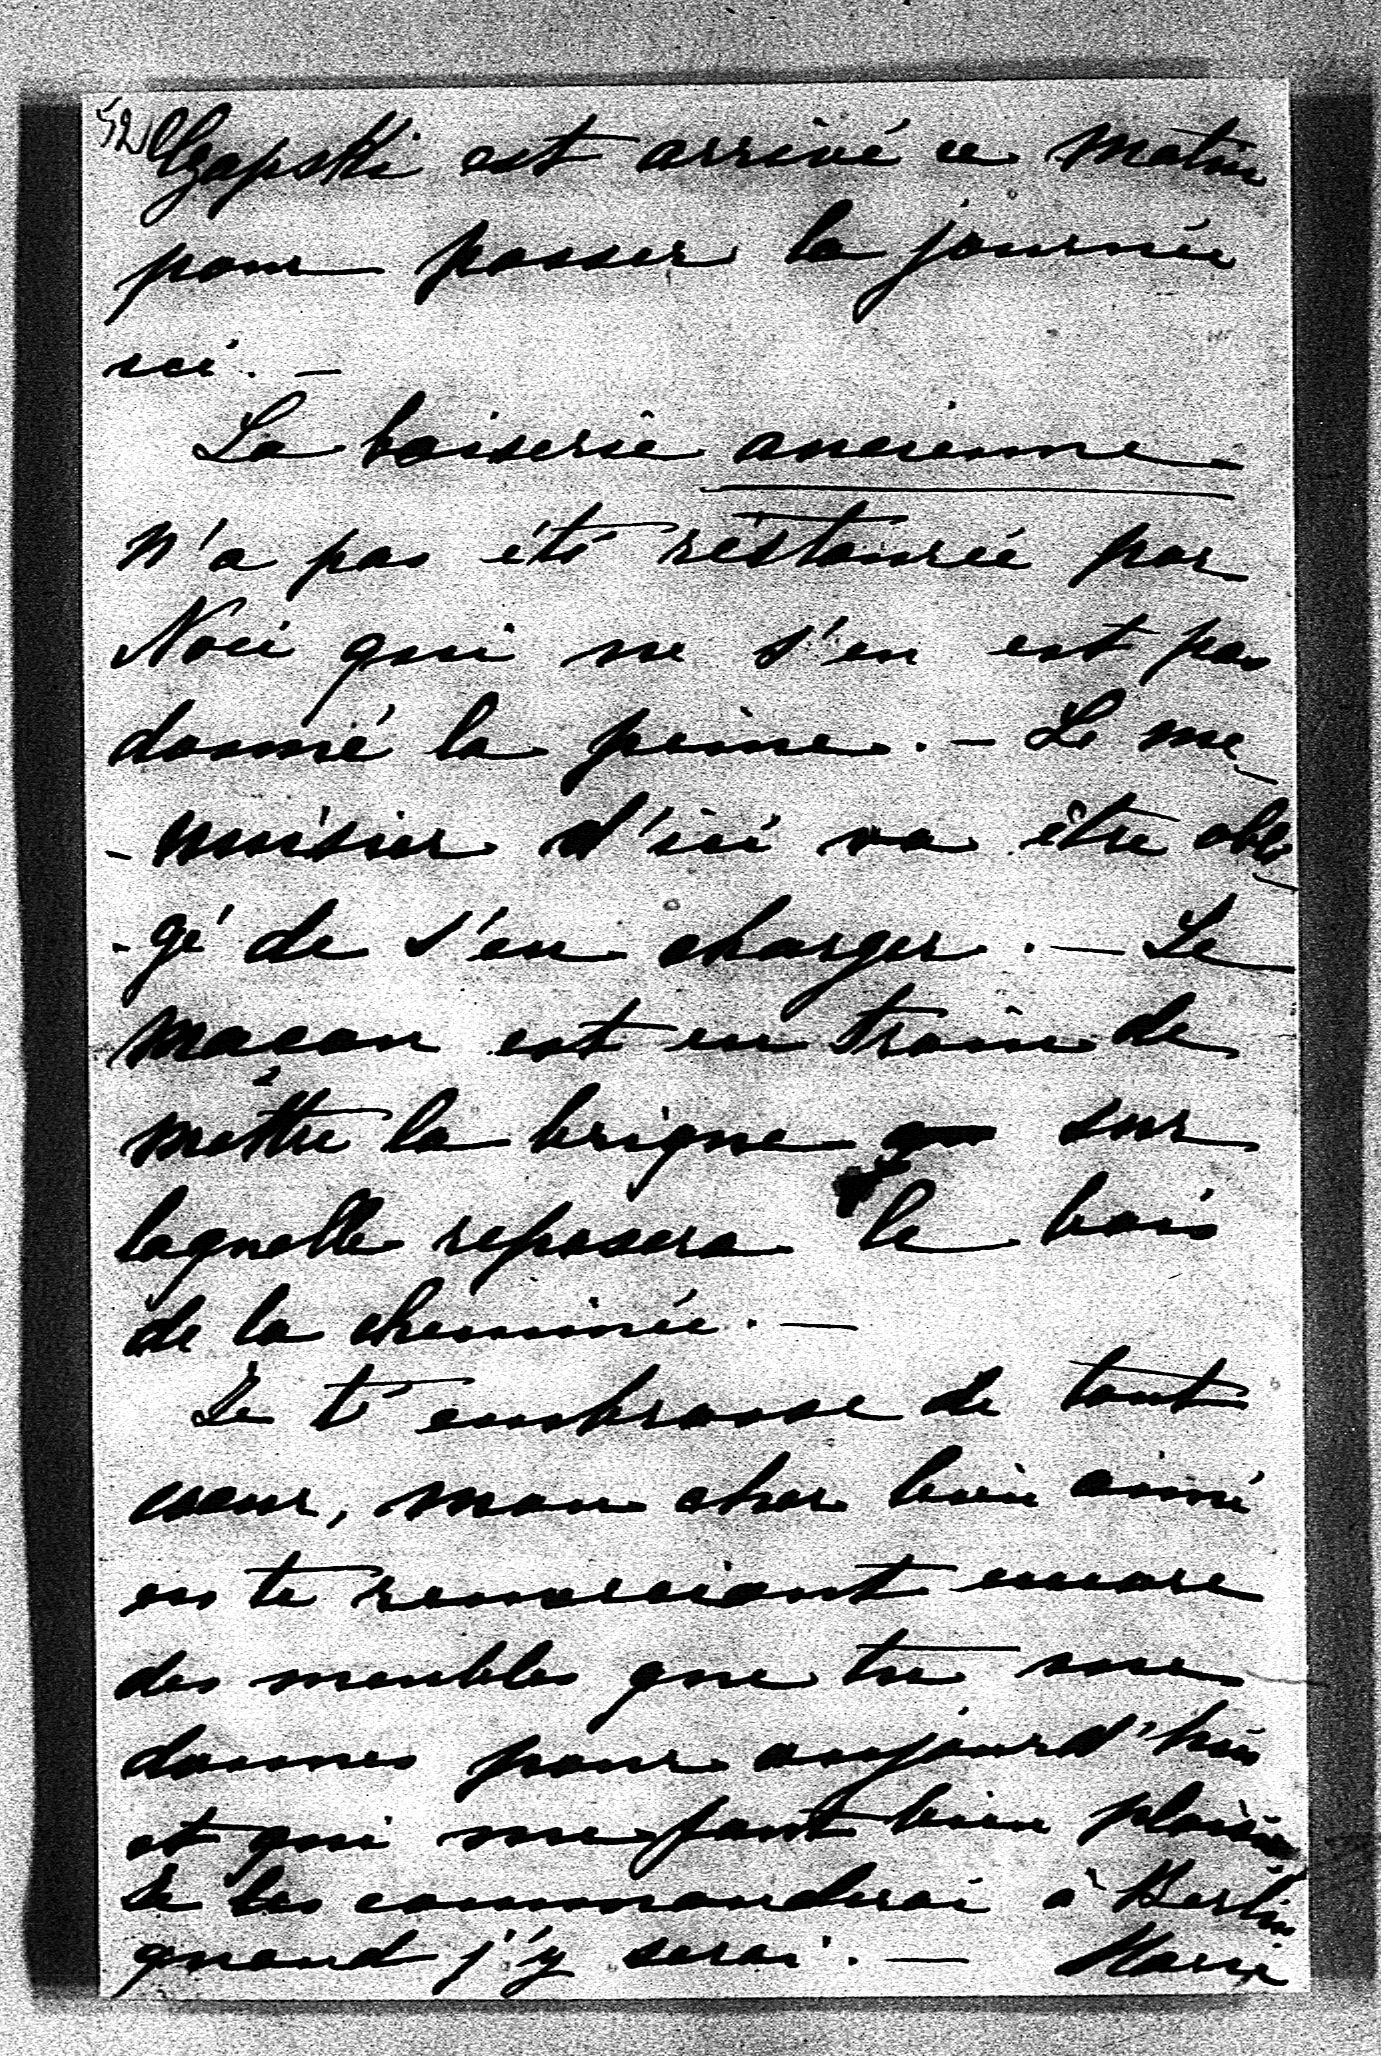 52 Czapski est arrivé ce matin
pour passer la journée
ici. —
La boiserie ancienne
n'a pas été restaurée par
Noci qui ne s'en est pas
donné la peine. — Le me-
-nuisier d'ici va être obli-
-gé de s'en charger. — Le
maçon est en train de
mettre la brique sur
laquelle reposera le bois
de la cheminée. —
Je t'embrasse de tout
cœur, mon cher bien aimé
en te remerciant encore
des meubles que tu me
donnes pour aujourd'hui
et qui me font bien plaisir
Je les commanderai à Berlin
quand j'y serai. — Marie